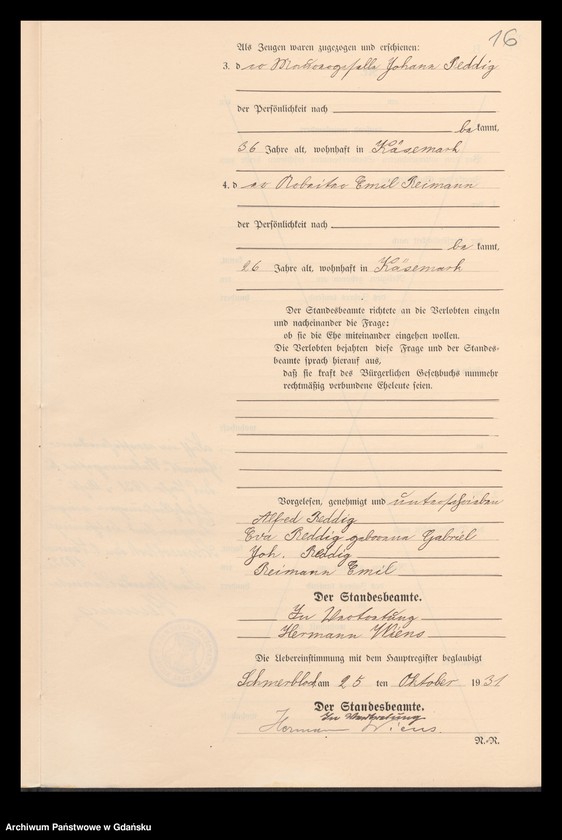 16
Als Zeugen waren zugezogen und erschienen:
3. der Johann Reddig
der Persönlichkeit nach
be kannt,
36 Jahre alt, wohnhaft in Käsemark
4. der Arbeiter Emil Reimann
der Persönlichkeit nach
be kannt,
26 Jahre alt, wohnhaft in Käsemark
Der Standesbeamte richtete an die Verlobten einzeln
und nacheinander die Frage:
ob sie die Ehe miteinander eingehen wollen.
Die Verlobten bejahten diese Frage und der Standes-
beamte sprach hierauf aus,
daß sie kraft des Bürgerlichen Gesetzbuchs nunmehr
rechtmäßig verbundene Eheleute seien.
Vorgelesen, genehmigt und unterschrieben
Alfred Reddig
Eva Reddig geborene Gabriel
Joh. Reddig
Reimann Emil
Der Standesbeamte.
In Vertretung
Hermann Wiens
Die Uebereinstimmung mit dem Hauptregister beglaubigt
Schmerblock am 25 ten Oktober 1931
Der Standesbeamte.
In Vertretung
Hermann Wiens.
N.-R.
Archiwum Państwowe w Gdańsku